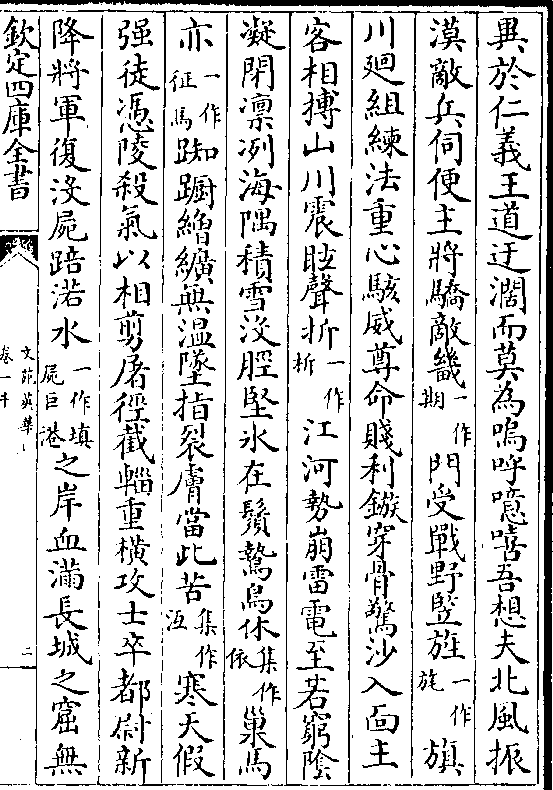 異於仁義王道迂濶而莫為嗚呼噫嘻吾想夫北風振
漠敵兵伺便主將驕敵畿一作期門受戰野竪旌一作旄旗
川廻組練法重心駭威尊命賤利鏃穿骨驚沙入面主
客相搏山川震眩聲折一作析江河勢崩雷電至若窮隂
凝閉凛冽海隅積雪沒脛堅氷在鬚鷙鳥休集作依巢馬
亦一作征馬踟蹰繒纊無温墜指裂膚當此苦集作沍寒天假
强徒憑陵殺氣以相剪屠徑截輜重橫攻士卒都尉新
降將軍復沒屍踣渃水一作填屍巨港之岸血滿長城之窟無
欽定四庫全書
文苑英華
卷一千
二